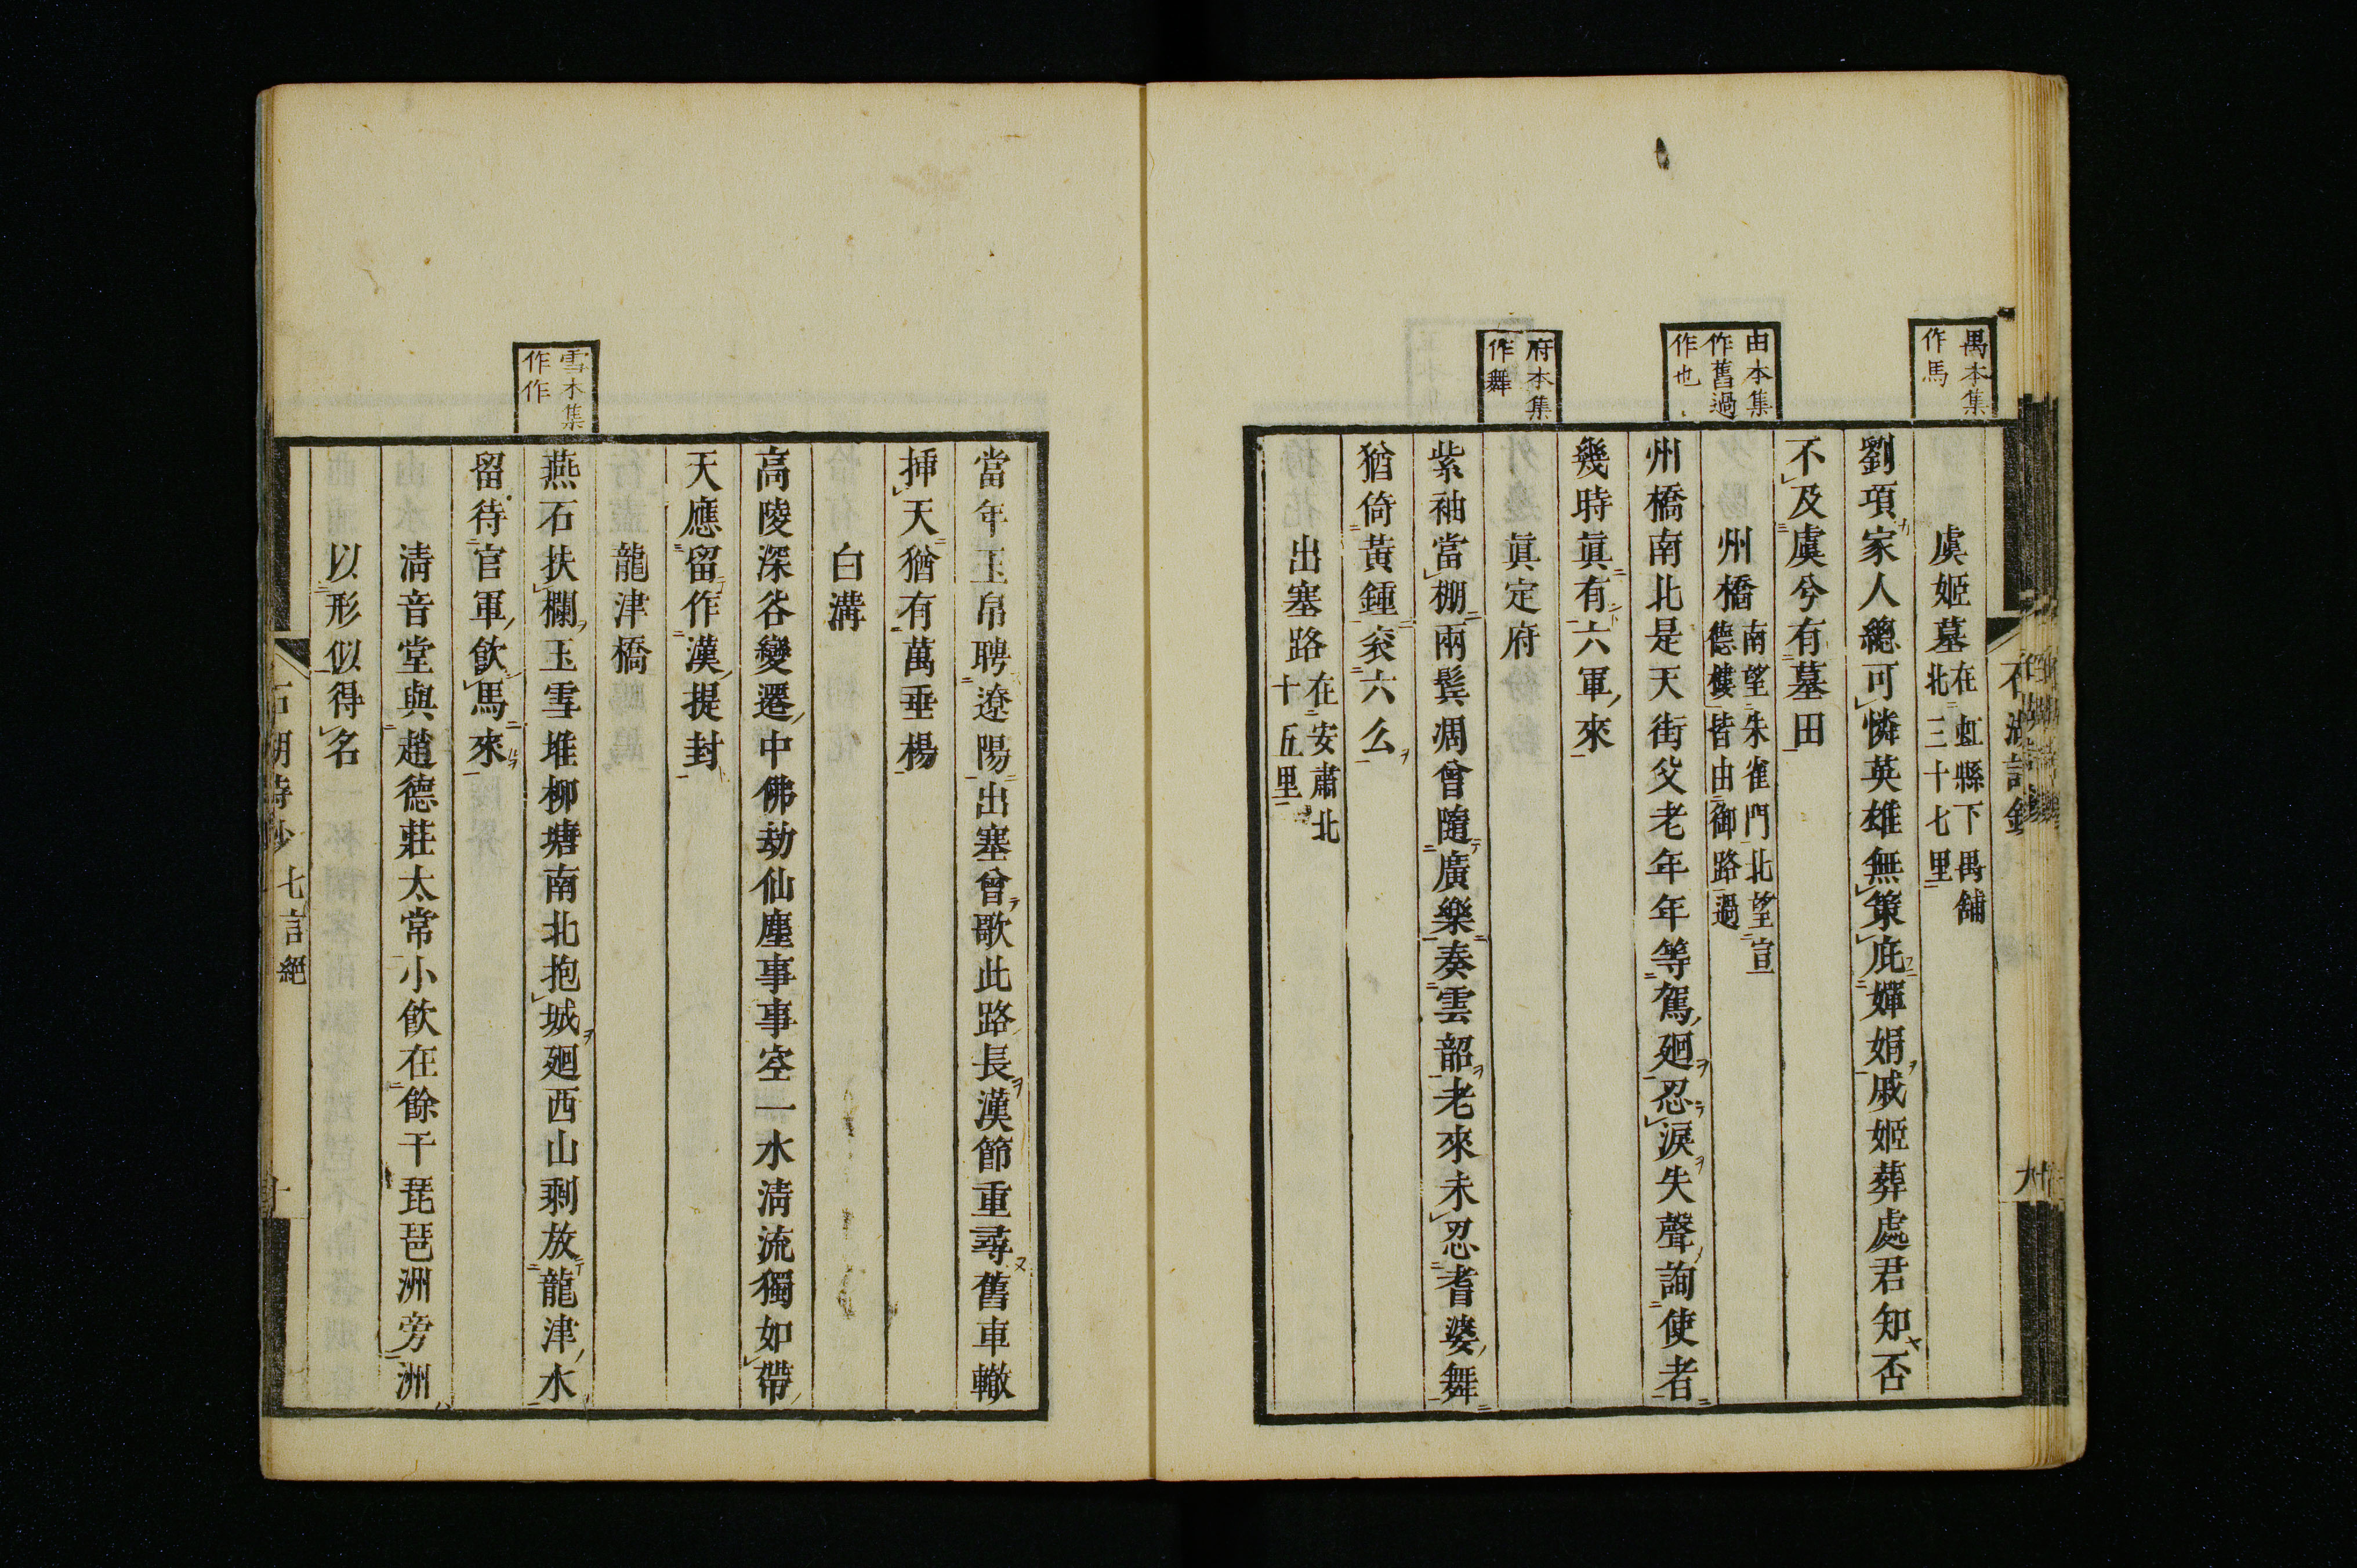 禺本集
作馬
由本集
作舊過
作也
府本集
作舞
虞姬墓在虹縣下禺舖
北三十七里
劉項家人總可憐英雄無策庇嬋娟戚姬葬處君知否
不及虞兮有墓田
州橋南望朱雀門北望宣
德樓皆由御路過
州橋南北是天街父老年年等駕廻忍淚失聲詢使者
幾時眞有六軍來
眞定府
紫袖當棚兩鬂凋曾隨廣樂奏雲韶老來未忍耆婆舞
猶倚黃鍾衮六么
出塞路在安肅北
十五里
雪本集
作作
當年玉帛聘遼陽出塞曾歌此路長漢節重尋舊車轍
揷天猶有萬垂楊
白溝
高陵深谷變遷中佛劫仙塵事事空一水清流獨如帶
天應留作漢提封
龍津橋
燕石扶欄玉雪堆柳塘南北抱城廻西山剩放龍津水
留待官軍飮馬來
清音堂與趙德莊太常小飮在餘干琵琶洲旁洲
以形似得名
石湖詩鈔 七言絕 十